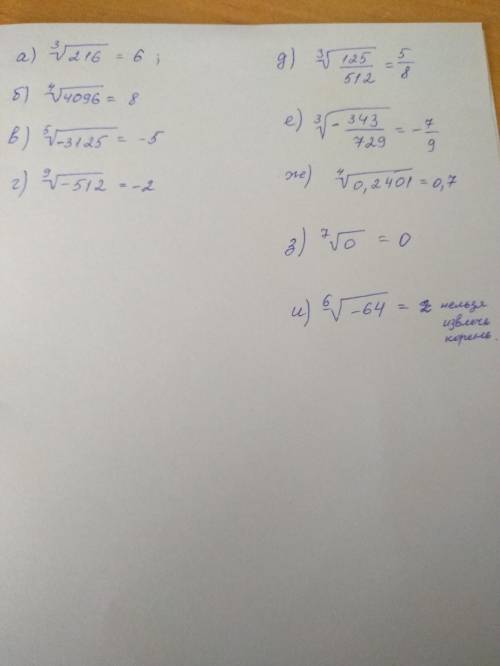 а) ∛216 = 6 ;
б) ∜4096 = 8
в) ⁵√-3125 = -5
г) ⁹√-512 = -2
д) ∛125/512 = 5/8
е) ∛-343/729 = -7/9
ж) ∜0,2401 = 0,7
з) ⁷√0 = 0
и) ⁶√-64 = нельзя
извлечь
корень.